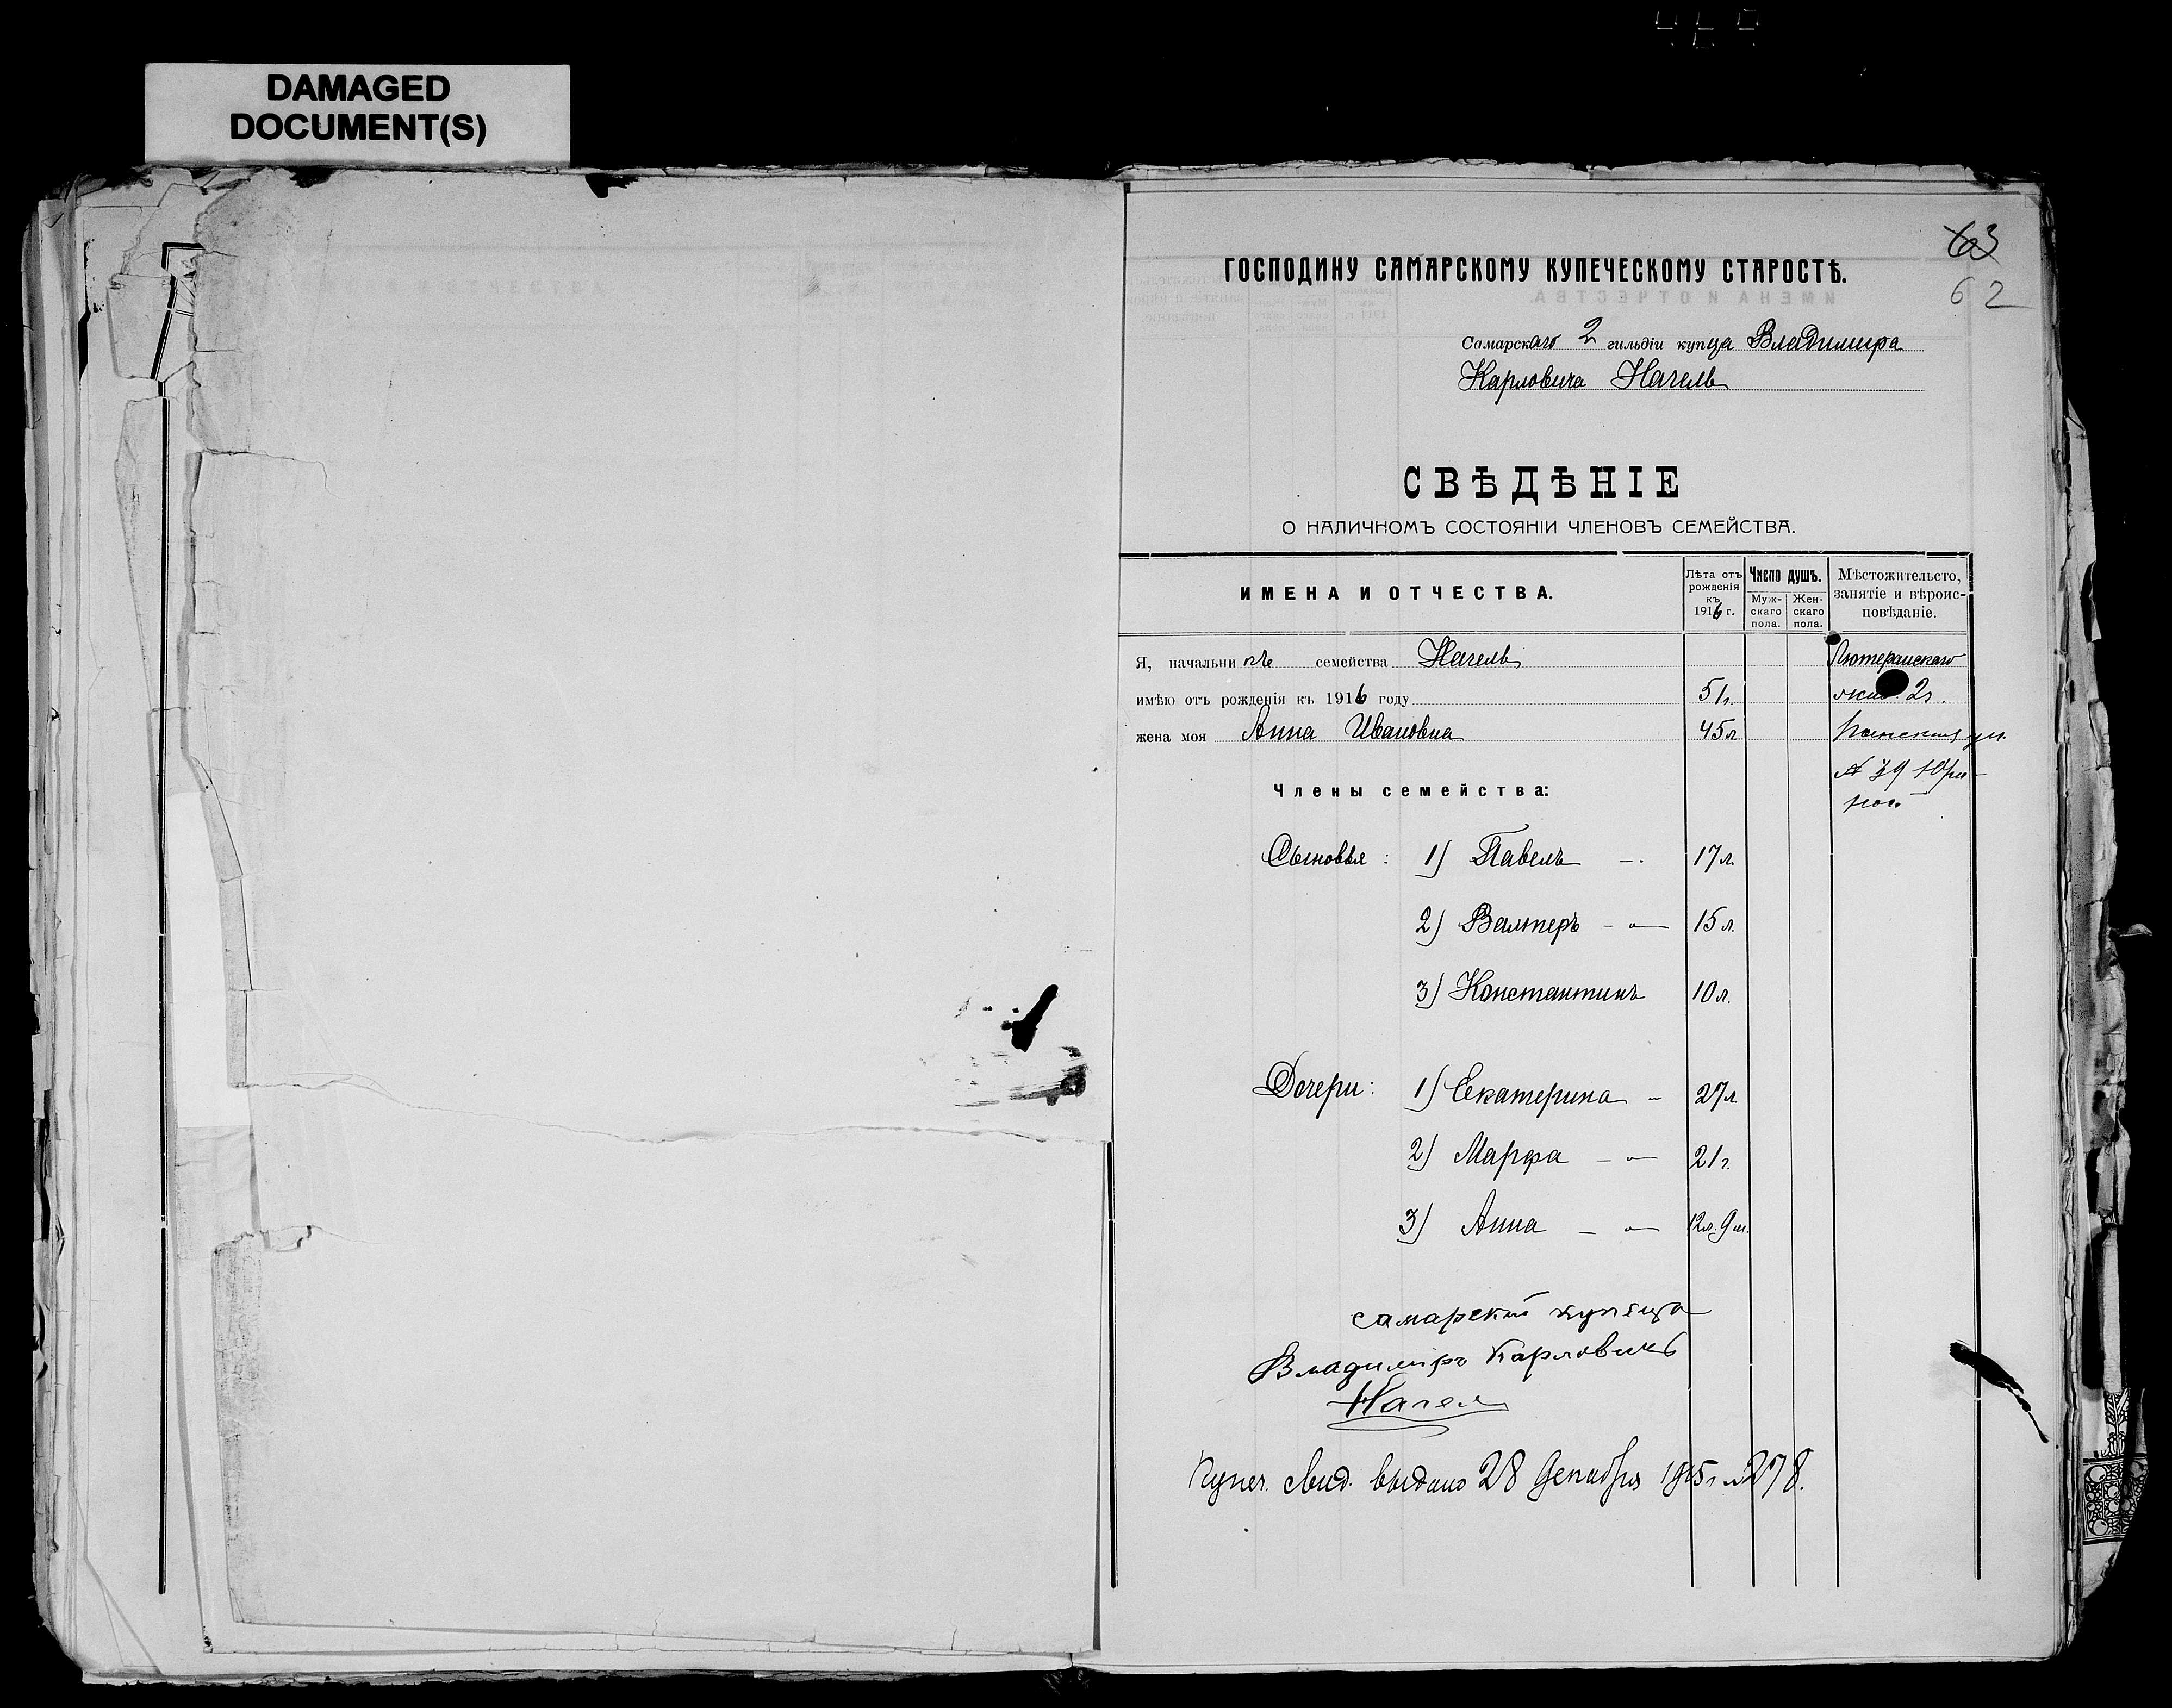 DAMAGED
DOCUMENT(S)
63
62
ГОСПОДИНУ САМАРСКОМУ КУПЕЧЕСКОМУ СТАРОСТѢ.
Самарскаго 2 гильдіи купца Владимира
Карловича Нагель
СВѢДѢНІЕ
О НАЛИЧНОМЪ СОСТОЯНІИ ЧЛЕНОВЪ СЕМЕЙСТВА.
ИМЕНА И ОТЧЕСТВА.
Лѣта отъ рожденія къ 1916 г.
Число душъ.
Муж-скаго пола.
Жен-скаго пола.
Мѣстожительсто, занятіе и вѣроис-повѣданіе.
Я, начальни семейства Нагель Лютеранскаго
имѣю отъ рожденія къ 1916 году 51 г. 2
жена моя Анна Ивановна 45 л ул.
39
Члены семейства:
Сыновья: 1) Павелъ 17 л.
2) Валтеръ 15 л.
3) Константинъ 10 л.
Дочери: 1) Екатерина 27 л.
2) Марфа 21 г.
3) Анна 12 л. 9 м.
самарскій купеца
Владимиръ Карловичъ
Нагел
Купеч. свид. выдано 28 Декабря 1915 г. № 278.